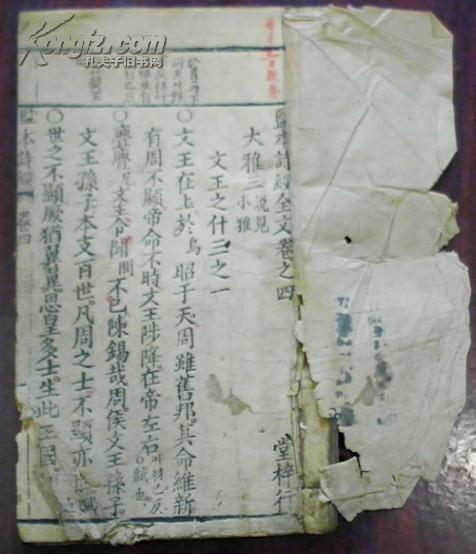 監本詩經全文卷之四
堂梓行
大雅三 說見小雅
文王之什三之一
○文王在上於烏昭于天周雖舊邦其命維新
有周不顯帝命不時文王陟降在帝左右叶羽已反○賦也
○亹亹尾文王令聞問不已陳錫哉周侯文王孫子
文王孫子本支百世凡周之士不顯亦世
○世之不顯厥猶翼翼思皇多士生此王國
監本詩經 卷四
Kongfz.com
孔夫子旧书网